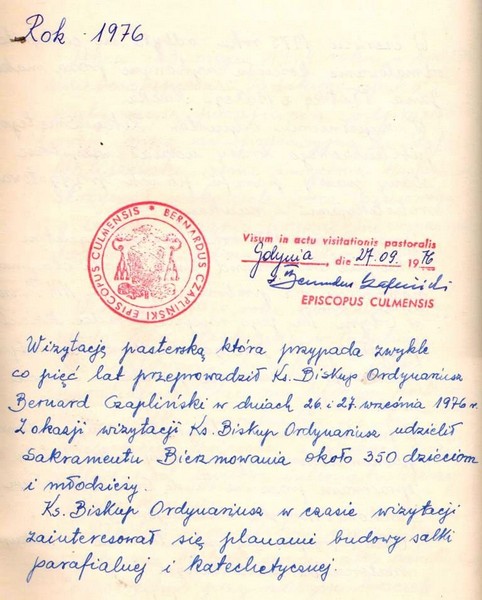 Rok 1976
BERNARDUS CZAPLIŃSKI EPISCOPUS CULMENSIS *
Visum in actu visitationis pastoralis
Gdynia, die 27.09. 1976
EPISCOPUS CULMENSIS
Wizytację pasterską która przypada zwykle
co pięć lat przeprowadził Ks. Biskup Ordynariusz
Bernard Czapliński w dniach 26. i 27. września 1976 r.
Z okazji wizytacji Ks. Biskup Ordynariusz udzielił
Sakramentu Bierzmowania około 350 dzieciom
i młodzieży.
Ks. Biskup Ordynariusz w czasie wizytacji
zainteresował się planami budowy salki
parafialnej i katechetycznej.